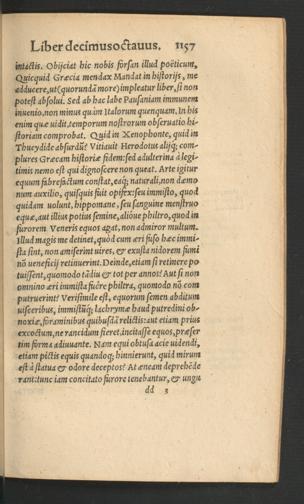 Liber decimusoctauus. 1157
intactis. Obijciat hic nobis forsan illud poëticum,
Quicquid Græcia mendax Mandat in historijs, me
adducere, ut (quorundā more) impleatur liber, si non
potest absolui. Sed ab hac labe Pausaniam immunem
inuenio, non minus quàm Italorum quenquam. In his
enim quæ uidit, temporum nostrorum obseruatio hi-
storiam comprobat. Quid in Xenophonte, quid in
Thucydide absurdū? Vitiauit Herodotus alijq; com-
plures Græcam historiæ fidem: sed adulterina à legi-
timis nemo est qui dignoscere non queat. Arte igitur
equum fabrefactum constat, eaq; naturali, non dæmo
num auxilio, quisquis fuit opifex: seu immisto, quod
quidam uolunt, hippomane, seu sanguine menstruo
equæ, aut illius potius semine, alióue philtro, quod in
furorem Veneris equos agat, non admiror multum.
Illud magis me detinet, quòd cum æri fuso hæc immi-
sta sint, non amiserint uires, & exusta nidorem sumi
nū ueneficij retinuerint. Deinde, etiam si retinere po
tuissent, quomodo tādiu & tot per annos? Aut si non
omnino æri immista fuêre philtra, quomodo nō com
putruerint? Verisimile est, equorum semen abditum
uisceribus, immistūq; lachrymæ haud putredini ob-
noxiæ, foraminibus quibusdā relictis: aut etiam prius
excoctum, ne rancidum fieret, incitasse equos, præser
tim forma adiuuante. Nam equi obtusa acie uidendi,
etiam pictis equis quandoq; hinnierunt, quid mirum
est à statua & odore deceptos? At æneam deprehēde
rant: tunc iam concitato furore tenebantur, & ungu
dd 3